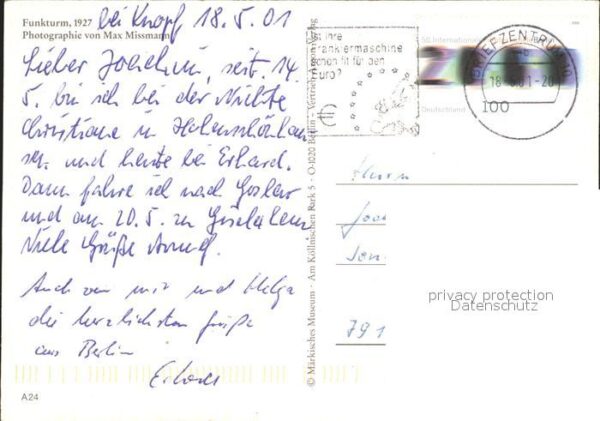 Funkturm, 1927
Photographie von Max Missmann
bei Knopf 18.5.01
Lieber Joachim, seit 14.
5. bin ich bei der Nichte
Christiane in Hohenschönhau
sen und heute bei Erhard.
Dann fahre ich nach Goslar
und am 20.5. zu Gisela
Viele Grüße
Auch von mir und Helga
die herzlichsten Grüße
aus Berlin
Erhard
A24
© Märkisches Museum · Am Köllnischen Park 5 · O-1020 Berlin
Ist Ihre
Frankiermaschine
schon fit für den
Euro?
50 Internationale
Deutschland
100
BRIEFZENTRUM
18 01-20
Herrn
791
privacy protection
Datenschutz